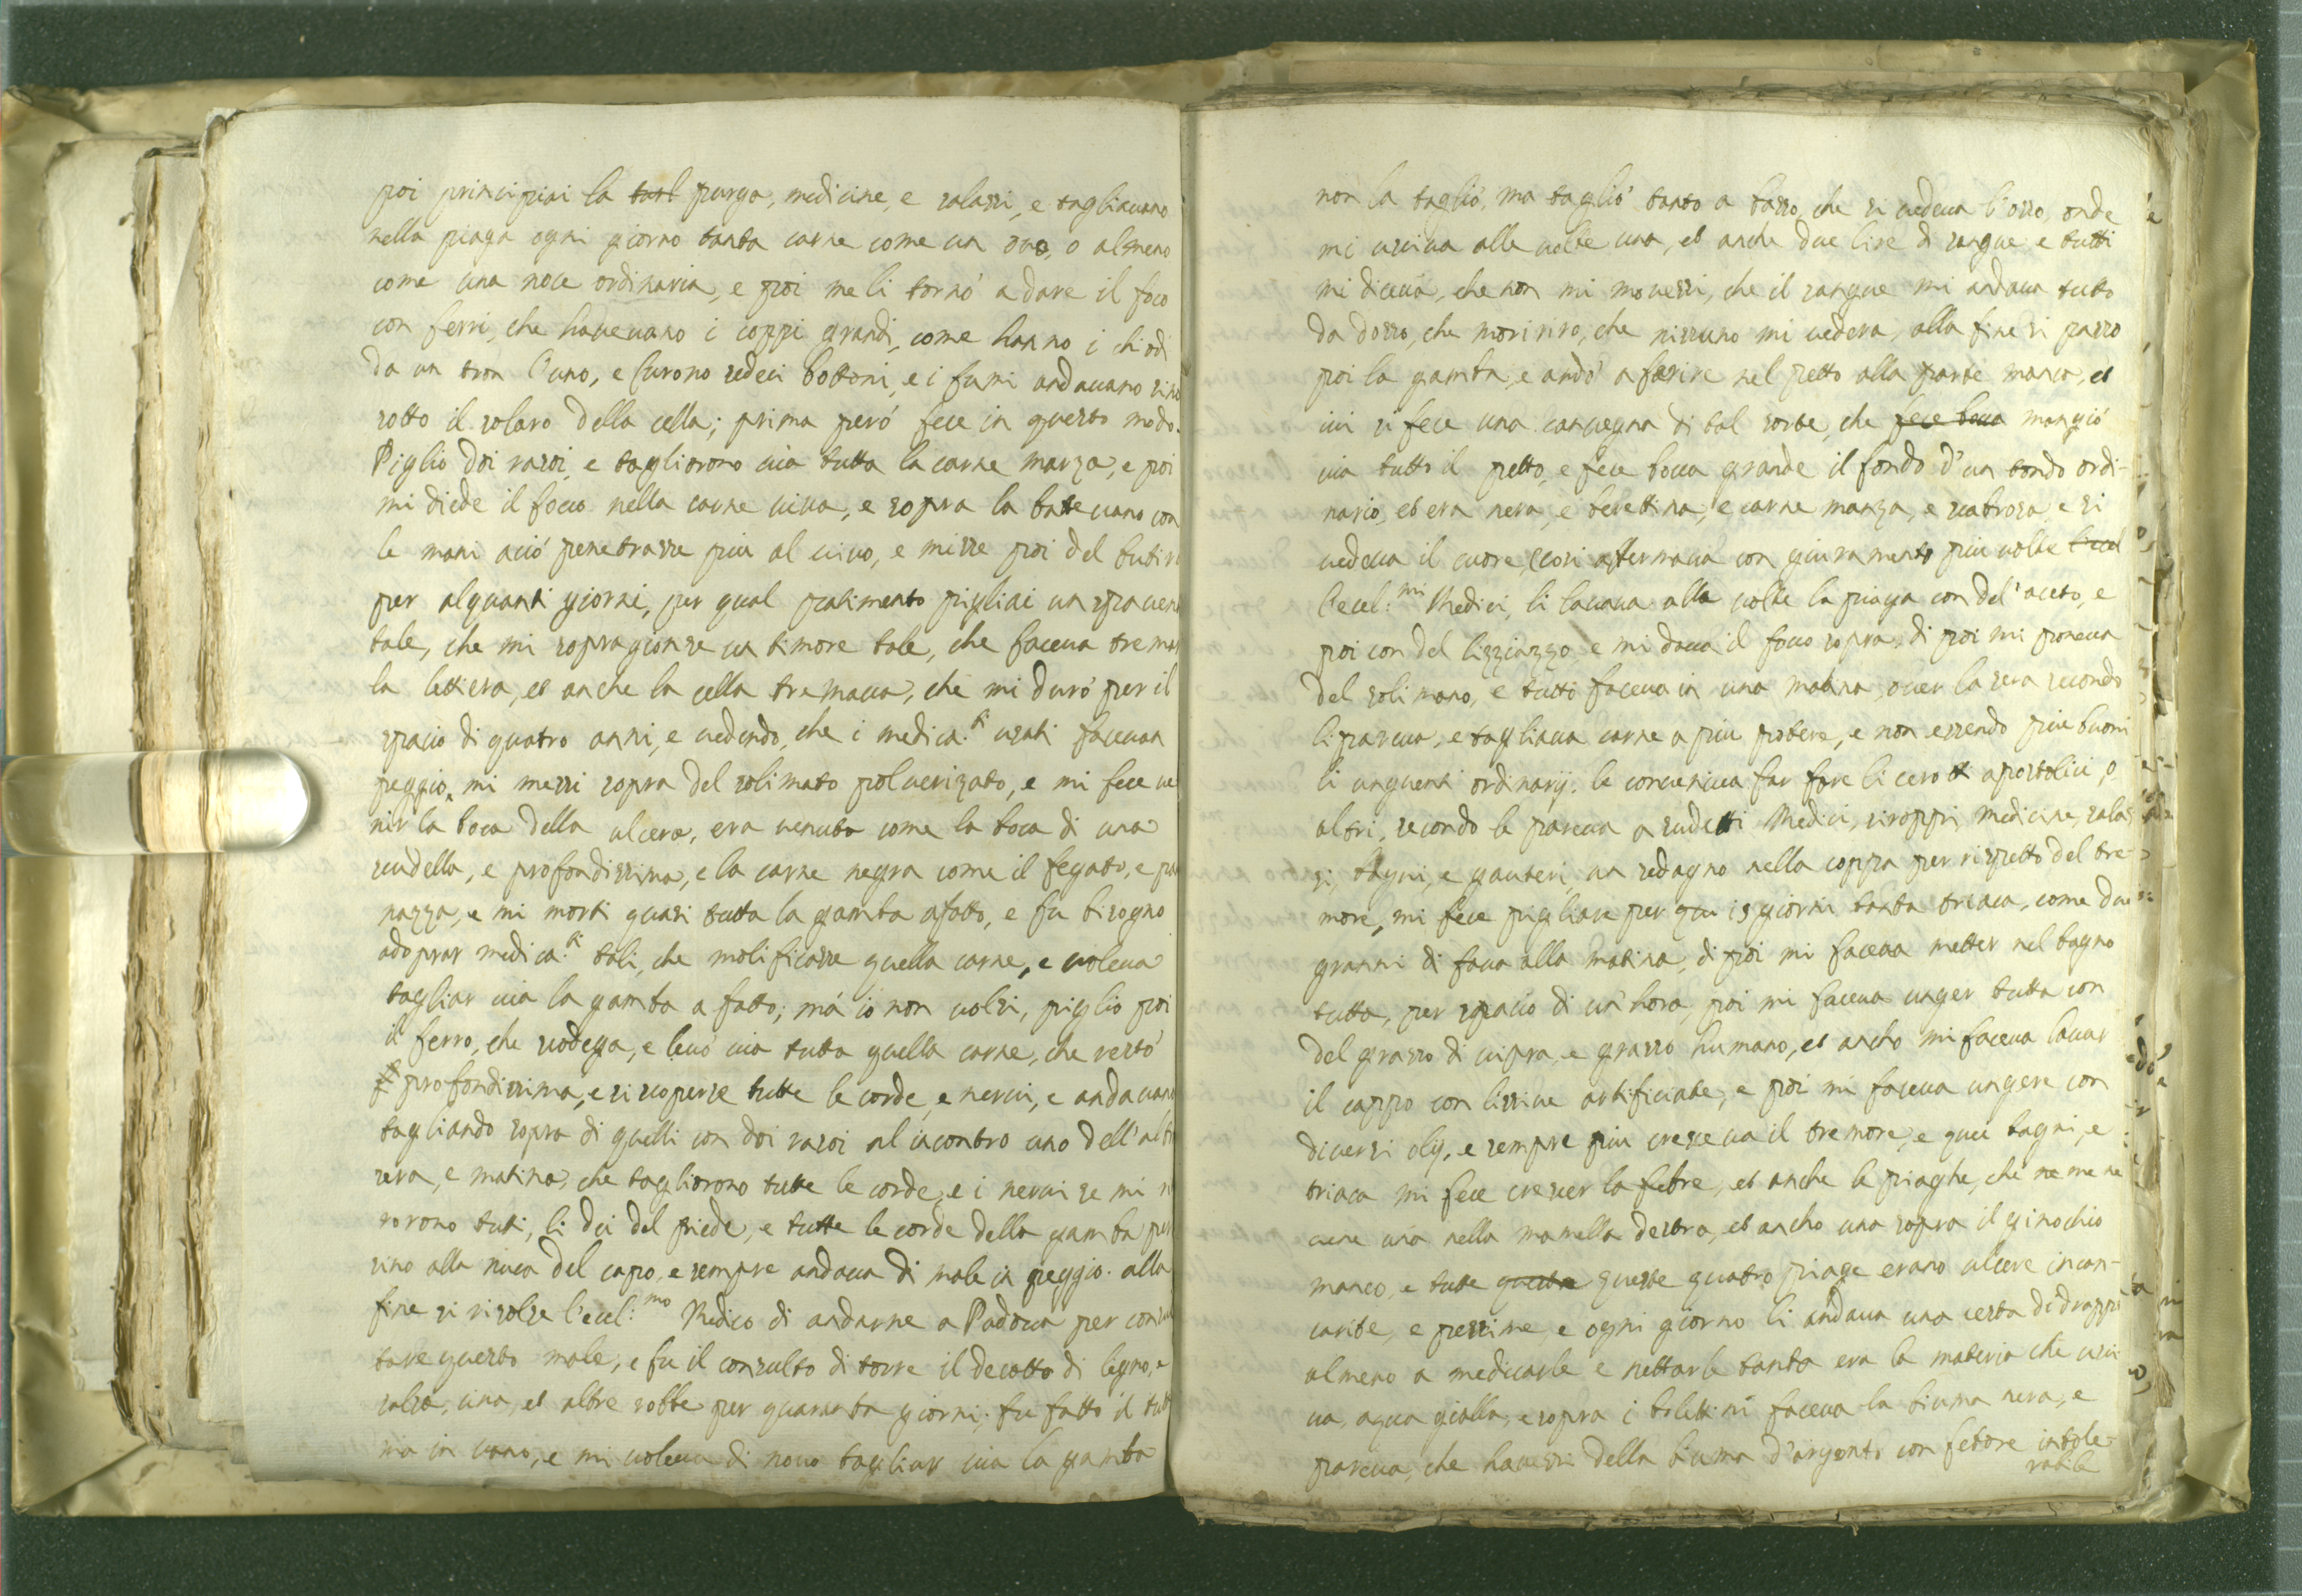 poi principiai la purga, medicine, e salassi, e tagliauano
nella piaga ogni giorno tanta carne come un ouo, o almeno
come una noce ordinaria, e poi me li tornò a dare il foco
con ferri, che haueuano i coppi grandi, come hanno i chiodi
da un tron l'uno, e furono sedeci bottoni, e i fumi andauano sino
sotto il solaro della cella; prima però fece in questo modo.
Pigliò doi rasoi, e tagliorono uia tutta la carne marza, e poi
mi diede il foco nella carne uiua, e sopra la bateuano con
le mani acciò penetrasse piu al uiuo, e misse poi del butiro
per alquanti giorni, per qual patimento pigliai un spauen
tale, che mi sopragionse un timore tale, che faceua tremar
la lettiera, et anche la cella tremaua, che mi durò per il
spacio di quatro anni, e uedendo, che i medica.ti usati faceuan
peggio, mi messi sopra del solimato poluerizato, e mi fece ue
nir la boca della ulcera, era uenuta come la boca di una
scudella, e profondissima, e la carne negra come il fegato, e pa
nazza, e mi mortì quasi tutta la gamba afatto, e fu bisogno
adoprar medica.ti tali, che molificasse quella carne, e uoleua
tagliar uia la gamba a fatto; mà io non uolsi, pigliò poi
il ferro, che rodega, e leuò uia tutta quella carne, che restò
profondissima, e si scoperse tutte le corde, e nerui, e andauano
tagliando sopra di quelli con doi rasoi al incontro uno dell'altro
sera, e matina, che tagliorono tutte le corde, e i nerui se mi
rorono tuti, li dei del piede, e tutte le corde della gamba per
sino alla nuca del capo, e sempre andaua di male in peggio. alla
fine si risolse l'ecel:mo Medico di andarne a Padoua per consul
tare questo male, e fu il consulto di torre il decotto di legno, e
salsa, uina, et altre robbe per quaranta giorni; fu fatto il tutt
ma in uano, e mi uoleua di nouo tagliar uia la gamba
non la tagliò, ma tagliò tanto a basso, che si uedeua l'osso, onde
mi usciua alle uolte una, et anche due lire di sangue e tutti
mi diceua, che non mi mouessi, che il sangue mi andaua tutto
da dosso, che moririno, che nissuno mi uedeua, alla fine si passò
poi la gamba, e andò a ferire nel petto alla parte manca, et
iui si fece una cancregna di tal sorte, che fece boca mangiò
uia tutto il petto, e fece bocca grande il fondo d'un tondo ordi-
nario, et era nera, e berettina, e carne marza, e scabrosa, e si
uedeua il cuore, (così affermaua con giuramento piu uolte l'ecel
l'ecel:mi Medici, li lauaua alla uolte la piaga con del'aceto, e
poi con del lizziazzo, e mi daua il foco sopra, di poi mi poneua
del solimano, e tutto faceua in una matina, ouer la sera secondo
li pareua, e tagliaua carne a piu potere, e non essendo piu buoni
li unguenti ordinarij. le conueniua far fare li cerotti apostolici, o
altri, secondo le pareua a sudetti Medici, siroppi, medicine, salas
si, bagni, e cauteri, un sedagno nella coppa per rispetto del tre-
more, mi fece pigliare per qui 15 giorni tanta triaca, come due
granni di faua alla matina, di poi mi faceua metter nel bagno
tutta, per spacio di un'hora, poi mi faceua unger tutta con
del grasso di uipra, e grasso humano, et ancho mi faceua lauar
il cappo con lissiue artificiate, e poi mi faceua ungere con
diuersi olij, e sempre piu cresceua il tremore, e quei bagni, e
triaca mi fece crescer la febre, et anche le piaghe, che ne me ne
uene una nella mamella destra, et ancho una sopra il ginochio
manco, e tutte questa queste quatro piage erano ulcere incan-
carite, e pessime, e ogni giorno li andaua una cesta di drappi
almeno a medicarle e nettarle tanta era la materia che usci
ua, aqua gialla, e sopra i bolettini faceua la sciuma nera, e
pareua, che hauessi della sciuma d'argento con fetore intole-
rabile